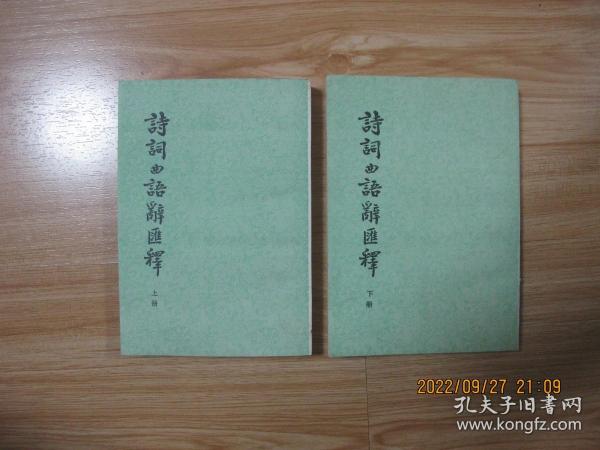 詩詞曲語辭匯釋
上册
詩詞曲語辭匯釋
下册
2022/09/27 21:09
孔夫子旧书网
www.kongfz.com